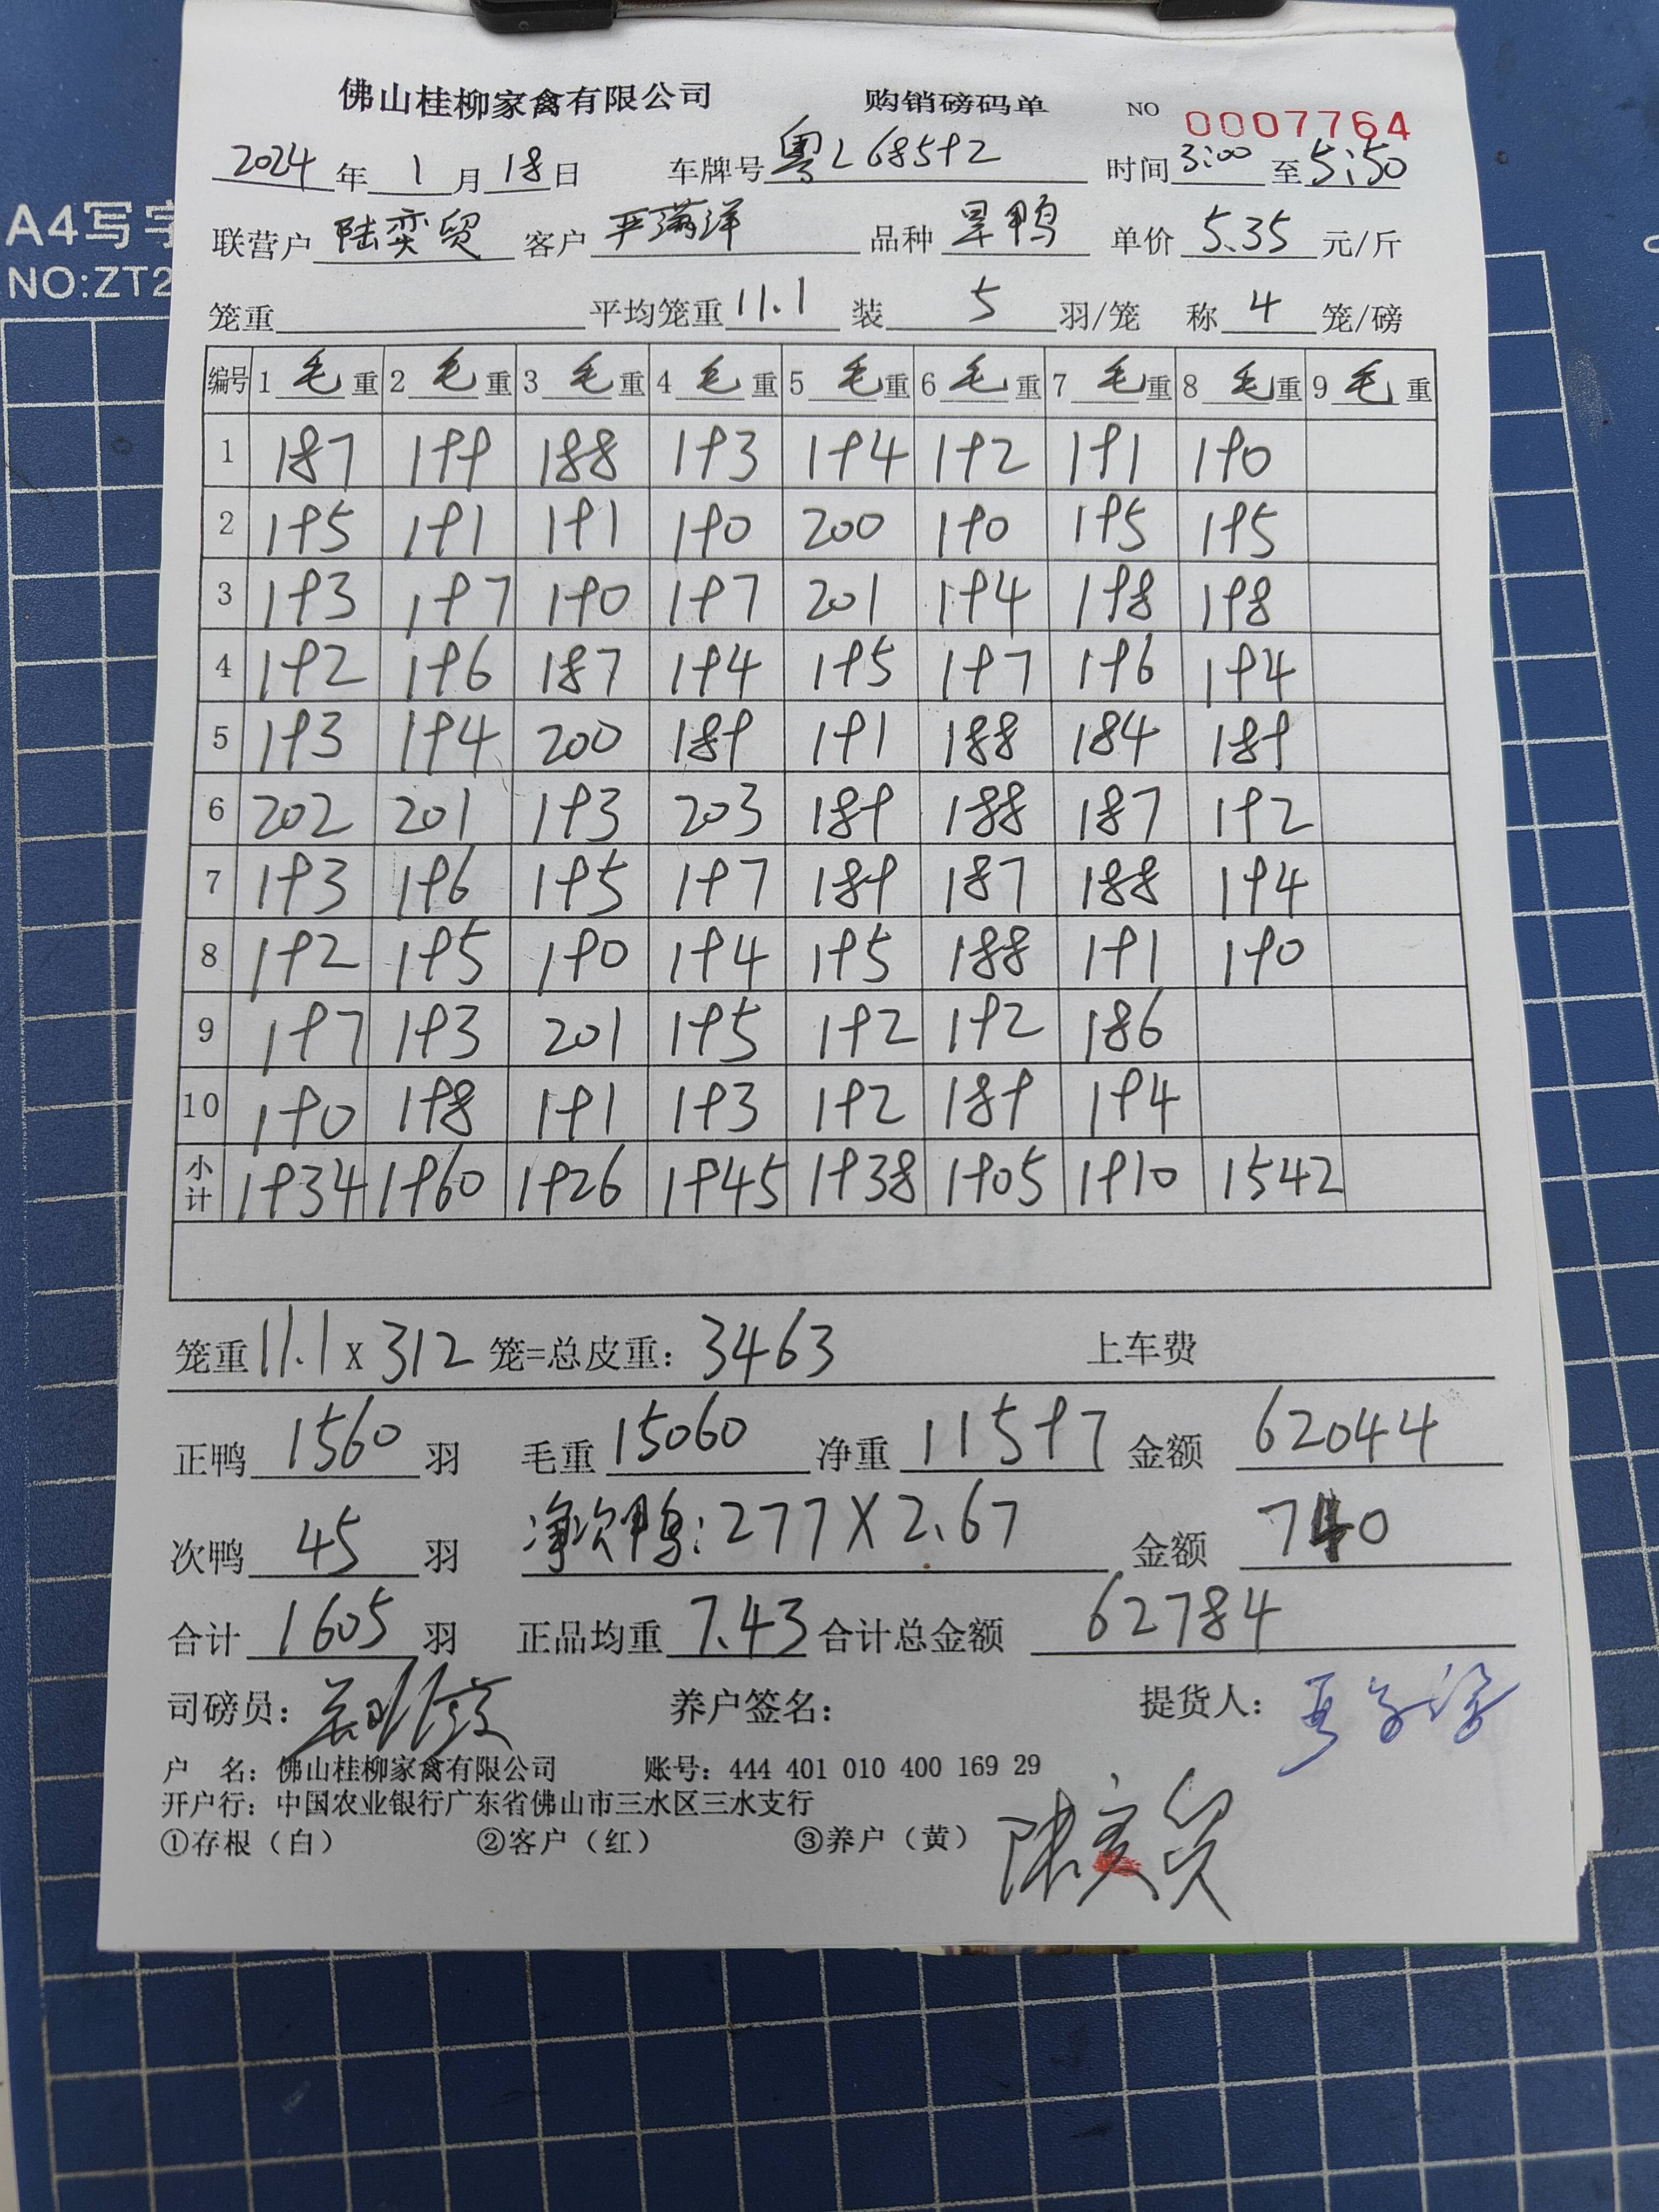 佛山桂柳家禽有限公司 购销磅码单 NO 0007764
2024年1月18日 车牌号粤L68592 时间3:00至5:50
联营户陆奕贸 客户严满洋 品种旱鸭 单价5.35元/斤
笼重 平均笼重11.1 装5羽/笼 称4笼/磅
编号 1毛重 2毛重 3毛重 4毛重 5毛重 6毛重 7毛重 8毛重 9毛重
1 187 199 188 193 194 192 191 190
2 195 191 191 190 200 190 195 195
3 193 197 190 197 201 194 198 198
4 192 196 187 194 195 197 196 194
5 193 194 200 189 191 188 184 189
6 202 201 193 203 189 188 187 192
7 193 196 195 197 189 187 188 194
8 192 195 190 194 195 188 191 190
9 197 193 201 195 192 192 186
10 190 198 191 193 192 189 194
小计 1934 1960 1926 1945 1938 1905 1910 1542
笼重11.1x312笼=总皮重：3463 上车费
正鸭1560羽 毛重15060 净重11597 金额62044
次鸭45羽 净次鸭：277X2.67 金额740
合计1605羽 正品均重7.43 合计总金额62784
司磅员： 养户签名： 提货人：
户 名：佛山桂柳家禽有限公司 账号：444 401 010 400 169 29
开户行：中国农业银行广东省佛山市三水区三水支行
①存根（白） ②客户（红） ③养户（黄）
A4写字
NO:ZT2